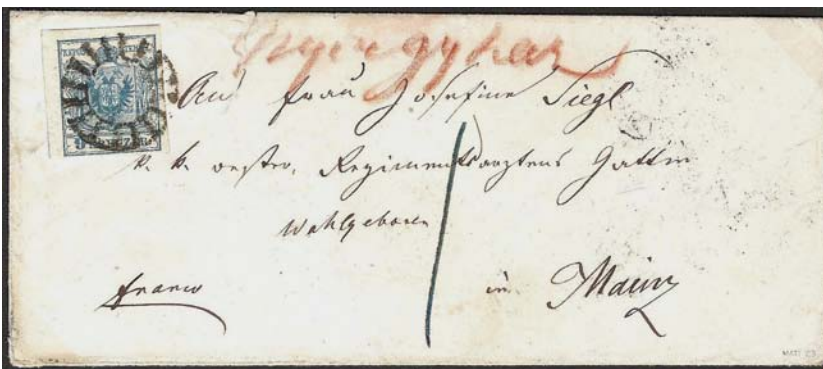 Gyöngyhaz
An Frau Josefine Siegl
k. k. oester. Regimentsarztens Gattin
Wohlgeboren
1
franco
in Mainz